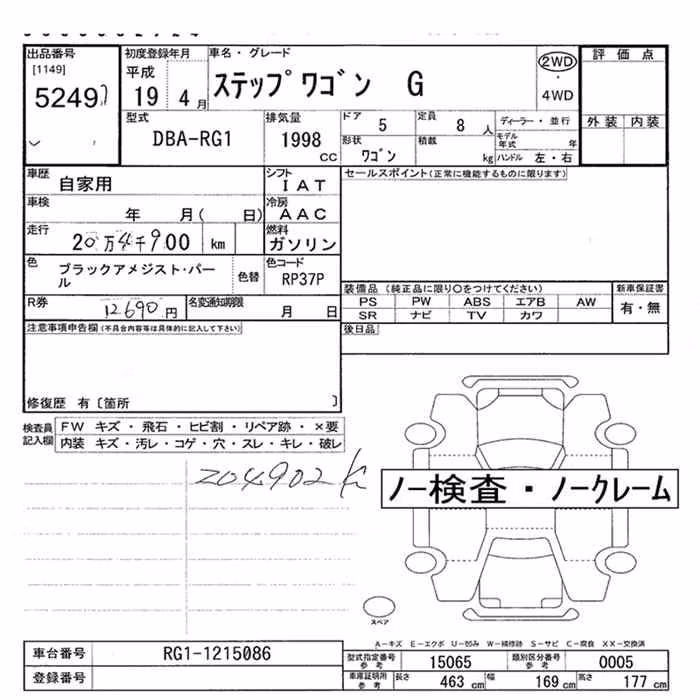 出品番号
[1149]
5249
初度登録年月
平成
19 4月
車名・グレード
ステップワゴン G
2WD
・
4WD
評価点
外装 内装
型式
DBA-RG1
排気量
1998
cc
ドア 5
定員 8 人
ディーラー・並行
形状
ワゴン
積載
kg
モデル年式 年
ハンドル 左・右
車歴
自家用
シフト
IAT
車検
年 月( 日)
冷房
AAC
走行
20万4千900 km
燃料
ガソリン
色
ブラックアメジスト・パール
色替
色コード
RP37P
R券
12690円
名変通知期限
月 日
セールスポイント(正常に機能するものに限ります)
装備品(純正品に限り○をつけてください)
PS PW ABS エアB AW
SR ナビ TV カワ
新車保証書
有・無
後日品
注意事項申告欄(不具合内容等は具体的に記入して下さい)
修復歴 有〔箇所 〕
検査員記入欄
FW キズ・飛石・ヒビ割・リペア跡・×要
内装 キズ・汚レ・コゲ・穴・スレ・キレ・破レ
204902
ノー検査・ノークレーム
スペア
A-キズ E-エクボ U-凹み W-補修跡 S-サビ C-腐食 XX-交換済
車台番号 RG1-1215086
登録番号
型式指定番号参考 15065
類別区分番号参考 0005
車庫証明用参考 長さ 463 cm 幅 169 cm 高さ 177 cm